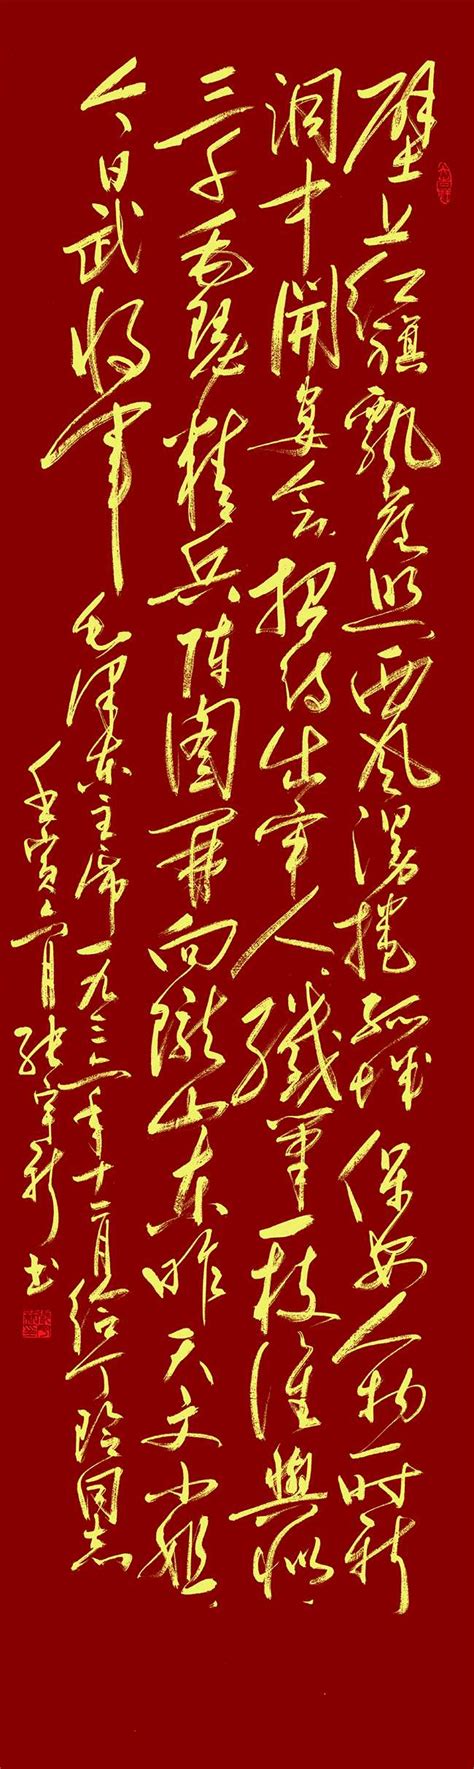 壁上红旗飘落照西风漫捲孤城保安人物一时新
洞中開宴会招待出牢人纖筆一枝誰與似
三千毛瑟精兵阵图開向隴山东昨天文小姐
今日武将军 毛泽东主席一九三六年十二月给丁玲同志
壬寅六月张宇新书